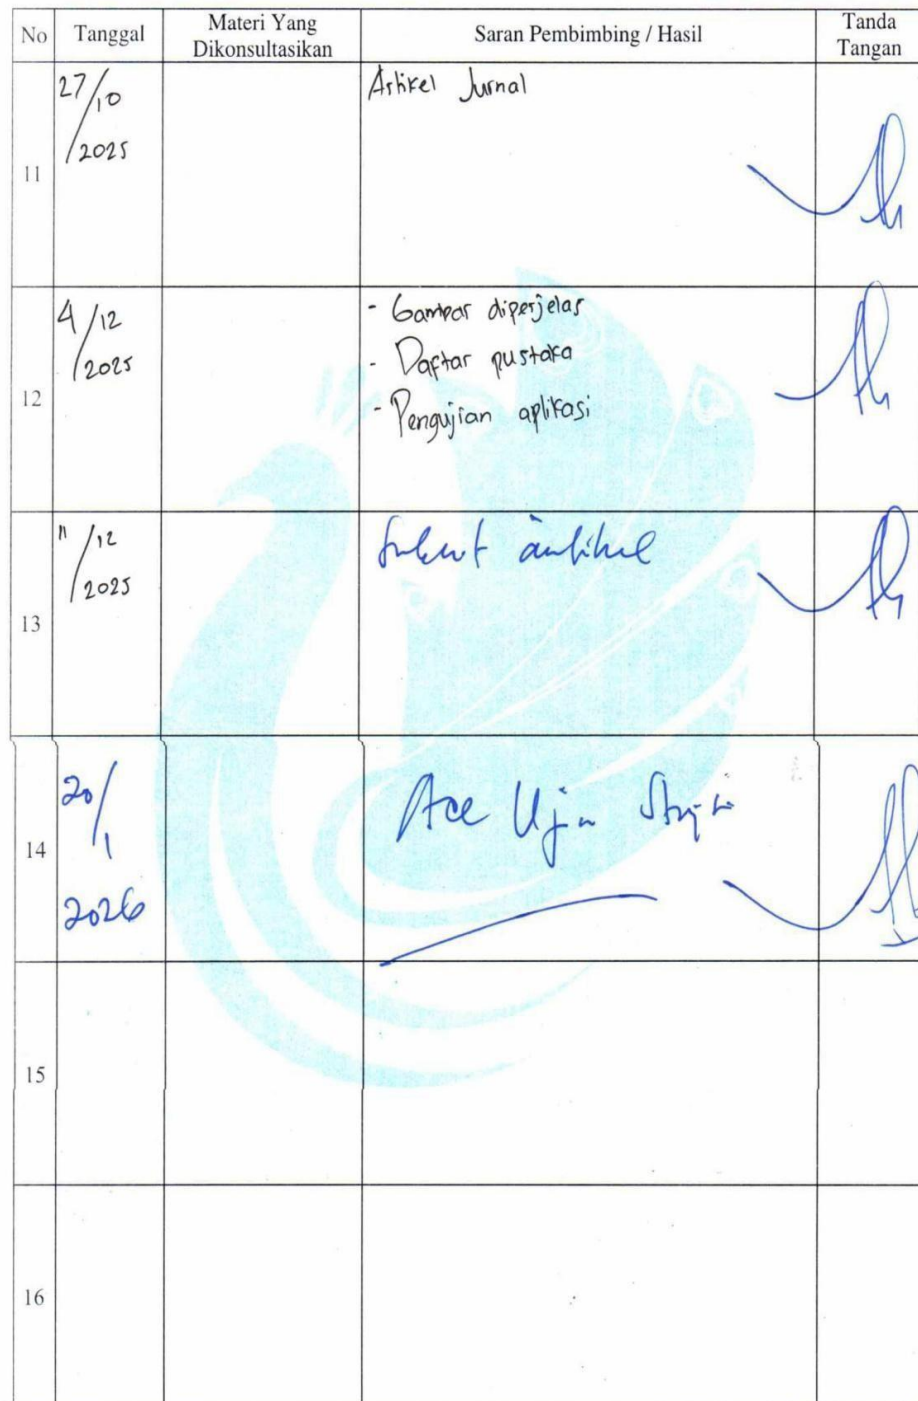 No Tanggal Materi Yang Dikonsultasikan Saran Pembimbing / Hasil Tanda Tangan
11 27/10/2025 Artikel Jurnal
12 4/12/2025 - Gambar diperjelas
- Daftar pustaka
- Pengujian aplikasi
13 11/12/2025 Submit artikel
14 20/1 2026 Acc Ujin
15
16